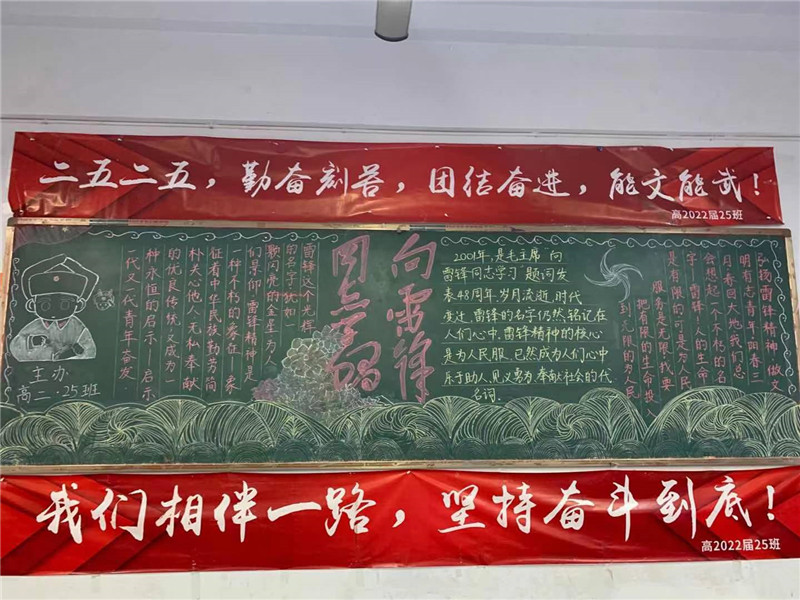 二五二五，勤奋刻苦，团结奋进，能文能武！
高2022届25班
弘扬雷锋精神 做文
明有志青年阳春三
月春回大地我们总
会想起一个不朽的名
字——雷锋人的生命
是有限的可是为人民
服务是无限我要
把有限的生命投入
到无限的为人民
2001年，是毛主席 向
雷锋同志学习 题词发
表48周年.岁月流逝.时代
变迁.雷锋的名字仍然铭记在
人们心中.雷锋精神的核心
是为人民服，已然成为人们心中
乐于助人，见义勇为，奉献社会的代
名词.
向雷锋
雷锋这个光辉
的名字，犹如一
颗闪亮的金星为人
们景仰雷锋精神是
一种不朽的象征——象
征着中华民族勤劳简
朴关心他人无私奉献
的优良传统又成为一
种永恒的启示——启示
一代又一代青年奋发
主办
高二·25班
我们相伴一路，坚持奋斗到底！
高2022届25班